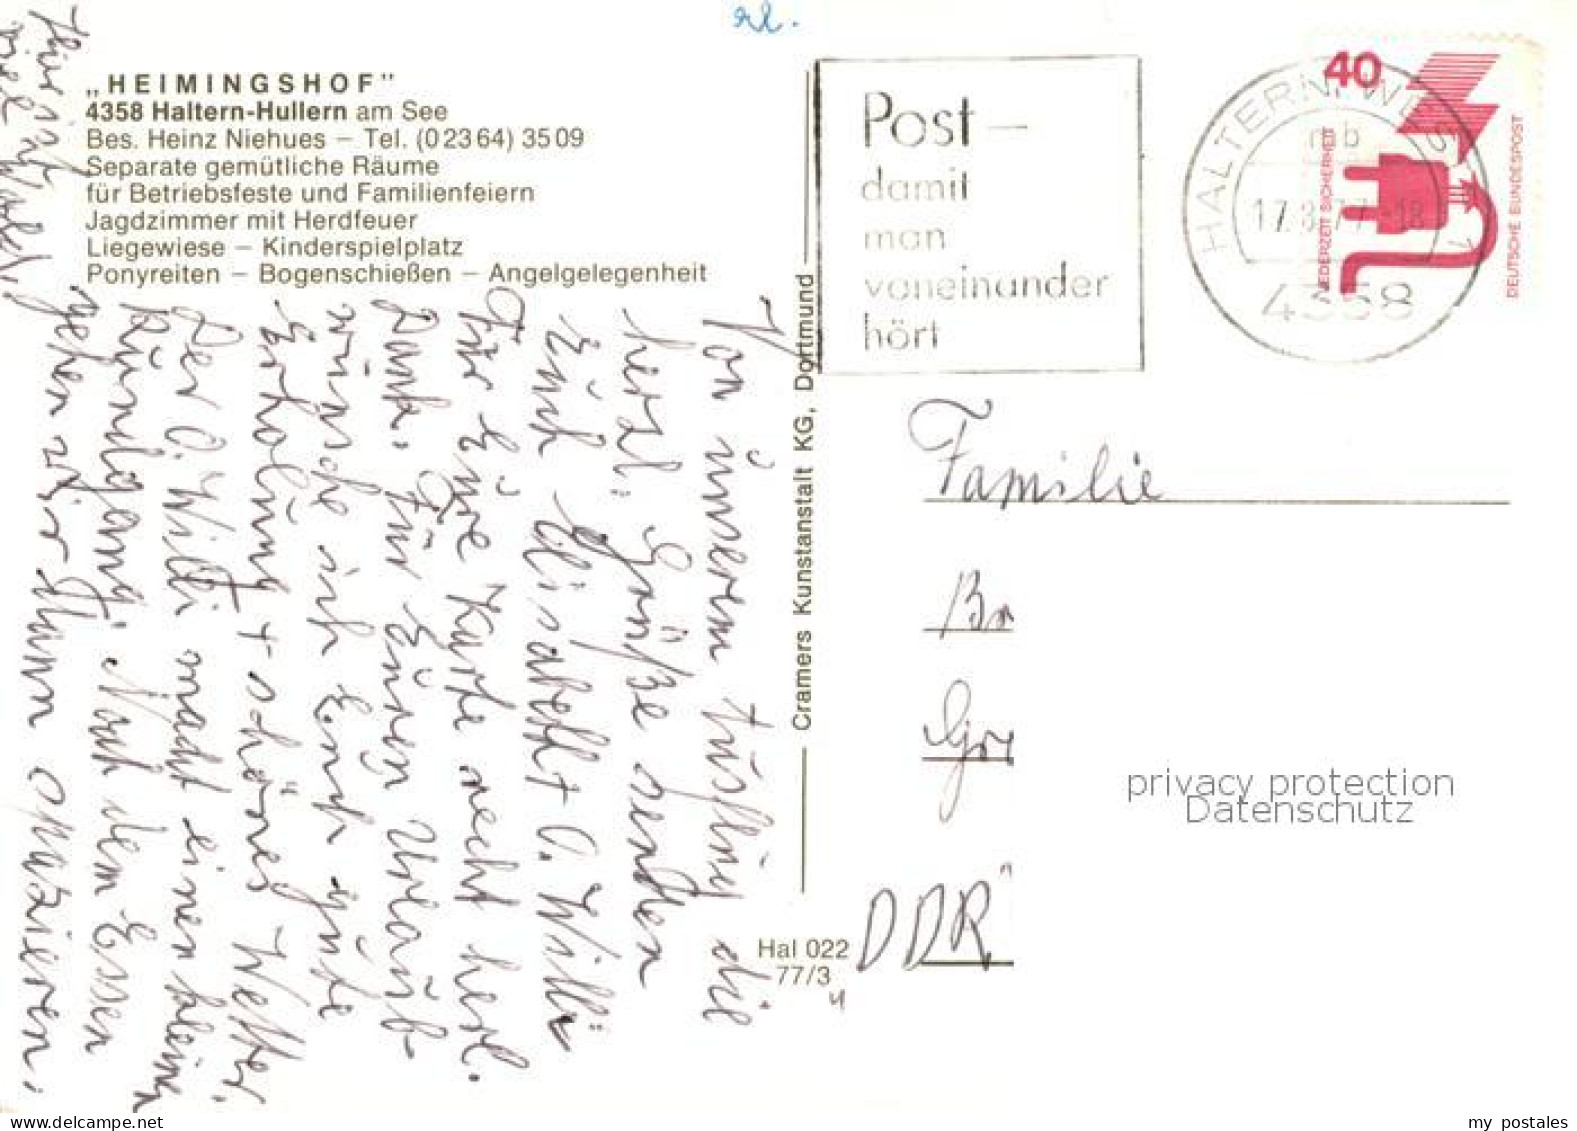 rl.
„HEIMINGSHOF"
4358 Haltern-Hullern am See
Bes. Heinz Niehues – Tel. (02364) 3509
Separate gemütliche Räume
für Betriebsfeste und Familienfeiern
Jagdzimmer mit Herdfeuer
Liegewiese – Kinderspielplatz
Ponyreiten – Bogenschießen – Angelgelegenheit
Von unserem Ausflug die
herzl. Grüße senden
Euch Elisabeth + O. Willi
Für Eure Karte recht herzl.
Dank. Für Euren Urlaub
wünsche ich Euch gute
Erholung + schönes Wetter.
Der O. Willi macht einen kleinen
Rundgang. Nach dem Essen
gehen wir dann spazieren.
Hier ist
viel Wald!
Cramers Kunstanstalt KG, Dortmund
Hal 022
77/3
Post –
damit
man
voneinander
hört
HALTERN, WESTF 1
mb
17.8.77-18
4358
40
JEDERZEIT SICHERHEIT
DEUTSCHE BUNDESPOST
Familie
DDR
privacy protection
Datenschutz
www.delcampe.net
my postales